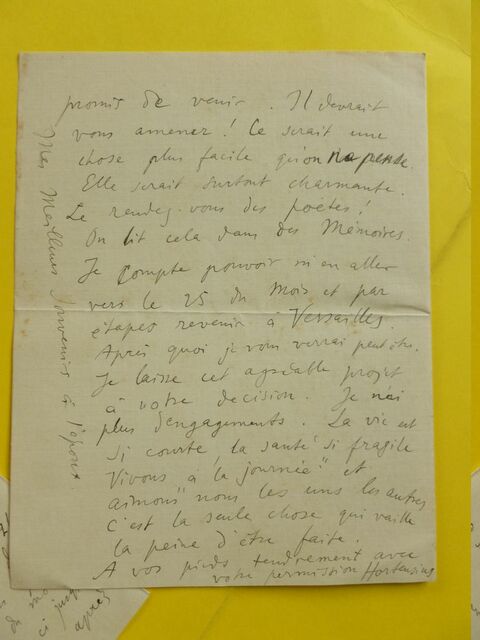 promis de venir. Il devrait
vous amener! Ce serait une
chose plus facile qu'on ne pense.
Elle serait surtout charmante.
Le rendez-vous des poètes!
On lit cela dans des Mémoires.
Je compte pouvoir m'en aller
vers le 25 du mois et par
étapes revenir à Versailles.
Après quoi je vous verrai peut-être.
Je laisse cet agréable projet
à votre decision. Je n'ai
plus d'engagements. La vie est
si courte, la santé si fragile
"Vivons à la journée" et
aimons "nous les uns les autres
C'est la seule chose qui vaille
la peine d'être faite.
A vos pieds tendrement avec
votre permission Hortensius
Mes Meilleurs souvenirs à l'époux.